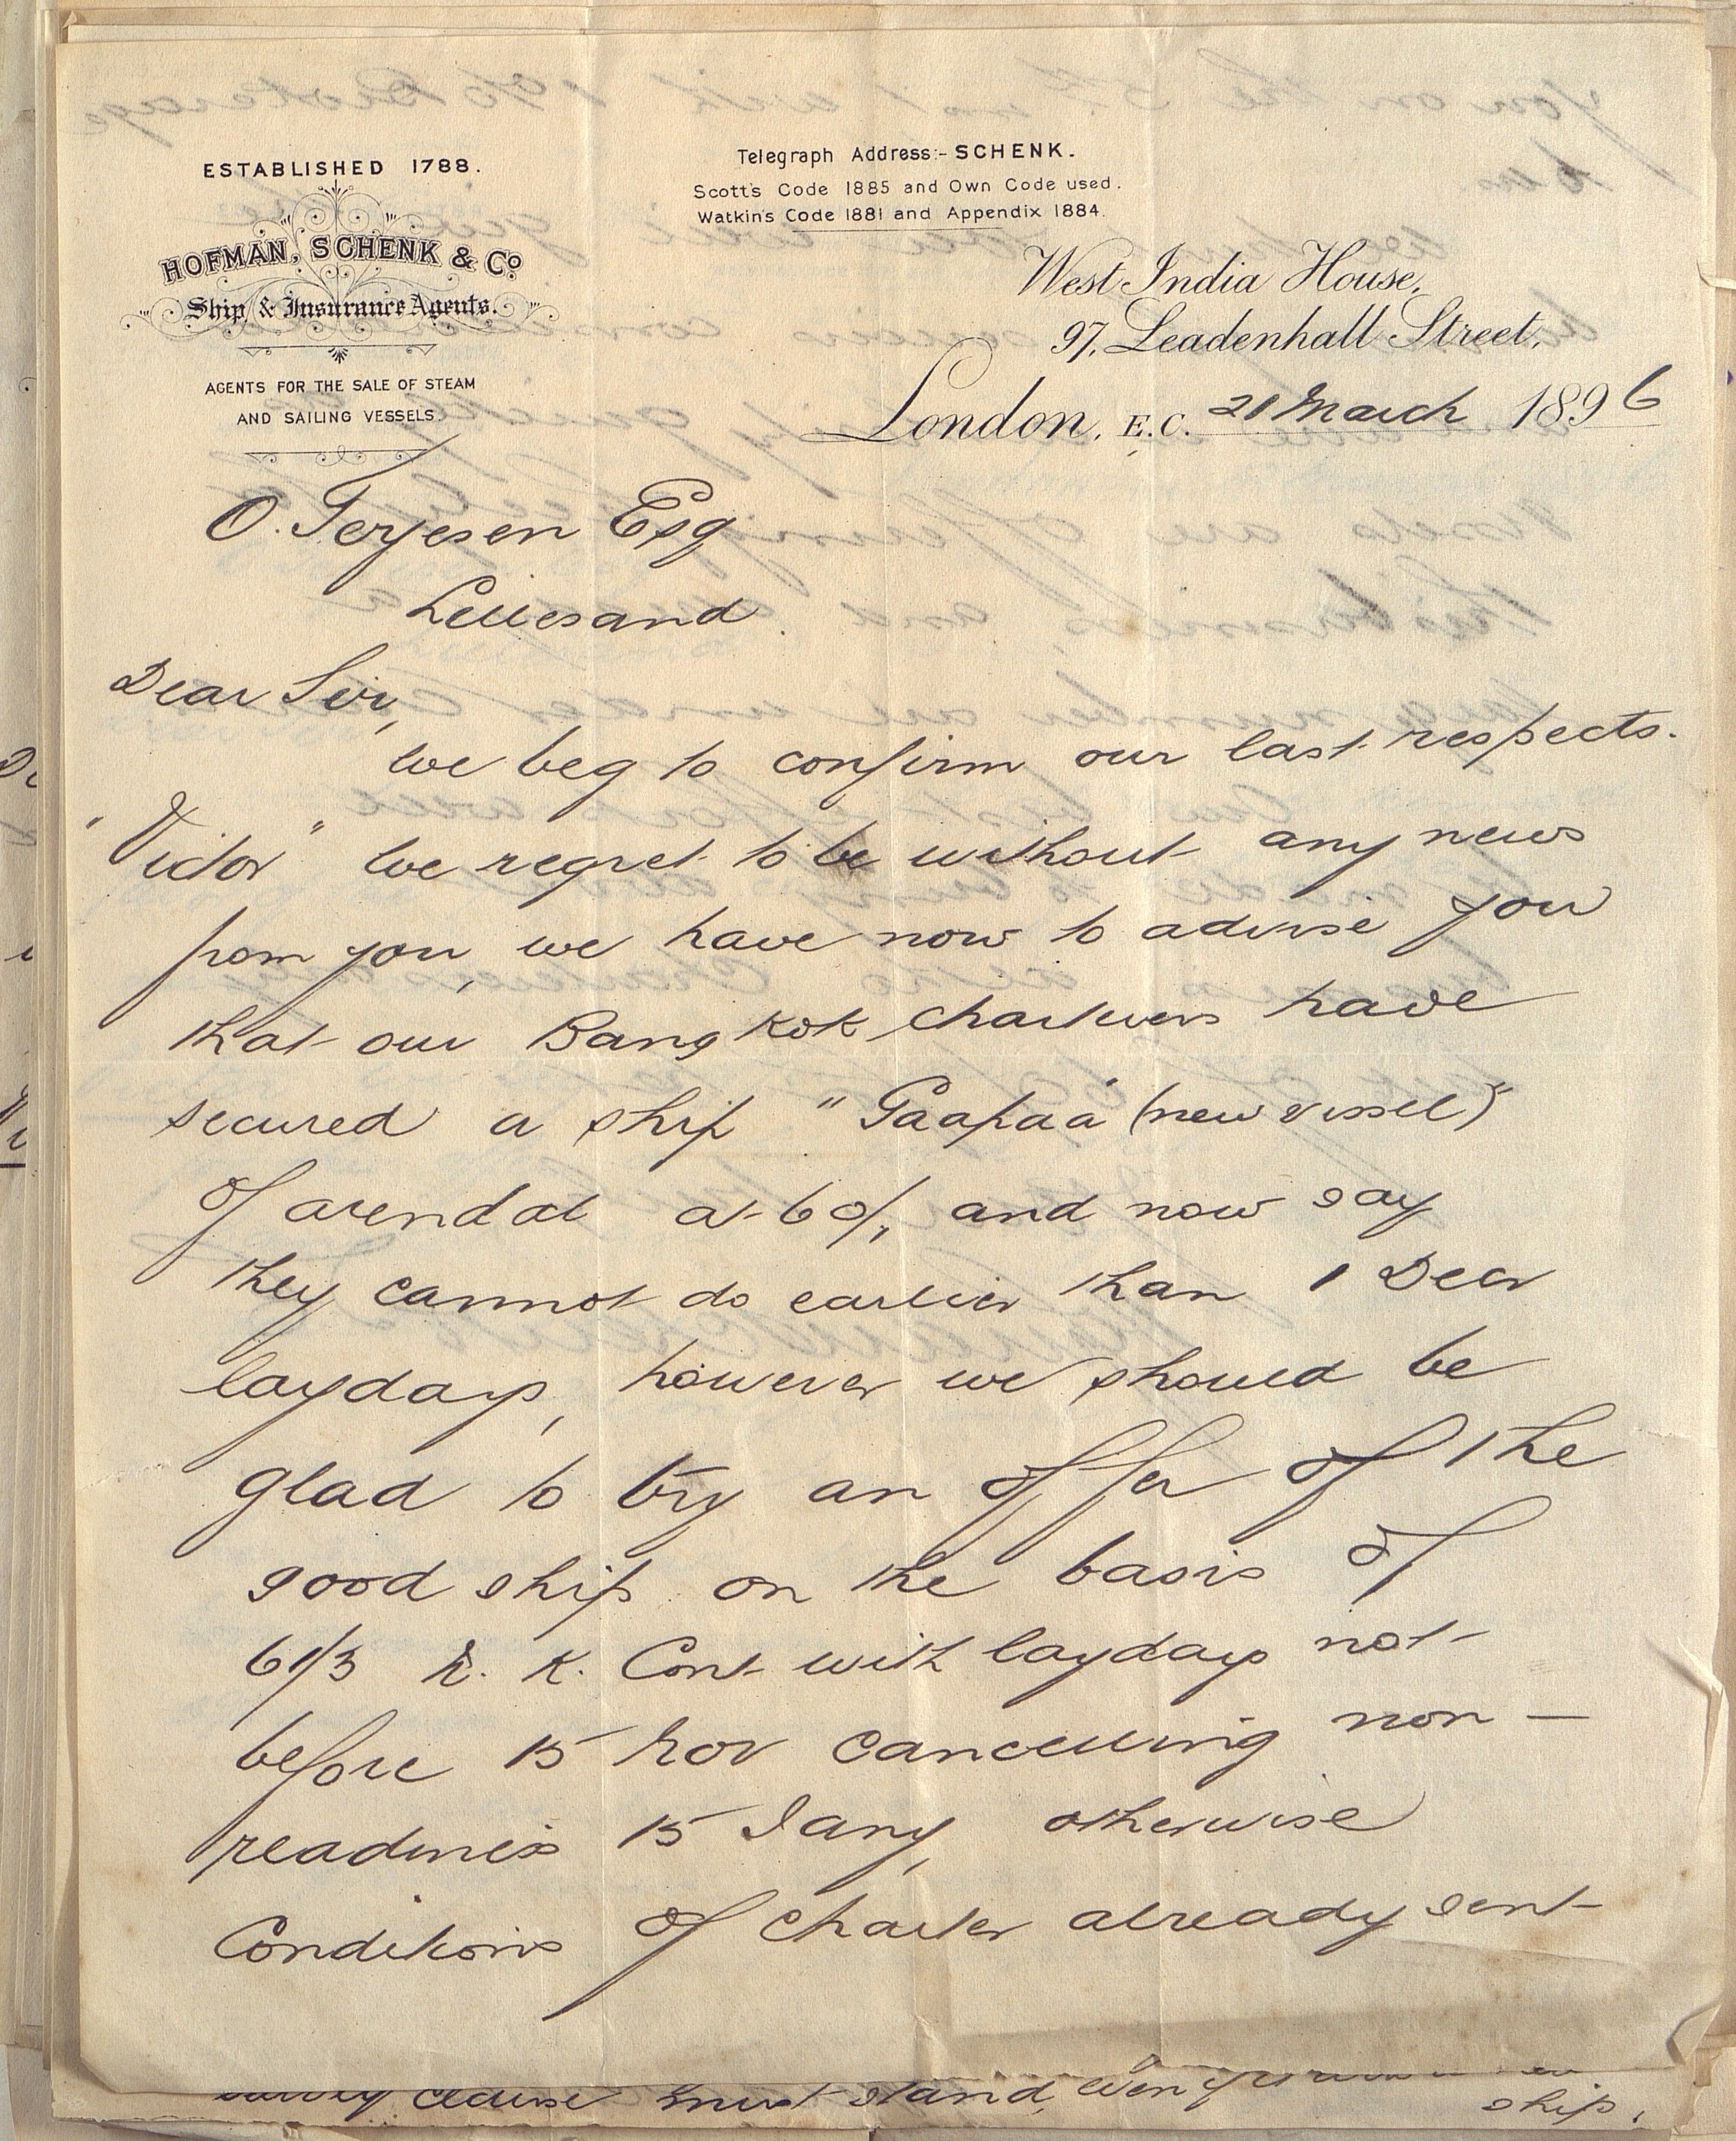 ESTABLISHED 1788.
HOFMAN, SCHENK & Co
Ship, & Insurance Agents.
AGENTS FOR THE SALE OF STEAM
AND SAILING VESSELS.
Telegraph Address:- SCHENK.
Scott's Code 1885 and Own Code used.
Watkin's Code 1881 and Appendix 1884.
West India House,
97, Leadenhall Street,
London, E.C. 21 March 1896
O. Terjesen Esq
Lillesand.
Dear Sir,
We beg to confirm our last respects.
"Victor" We regret to be without any news
from you, we have now to advise you
that our Bangkok charterers have
secured a ship "Paapaa" (new vessel)
of Arendal at 60/, and now say
they cannot do earlier than 1 Decr
laydays, however we should be
glad to try an offer of the
good ship on the basis of
61/3 U. K. Cont with laydays not
before 15 Nov cancelling non-
readiness 15 Jany, otherwise
Conditions of Charter already sent
clause must stand, even
ship.